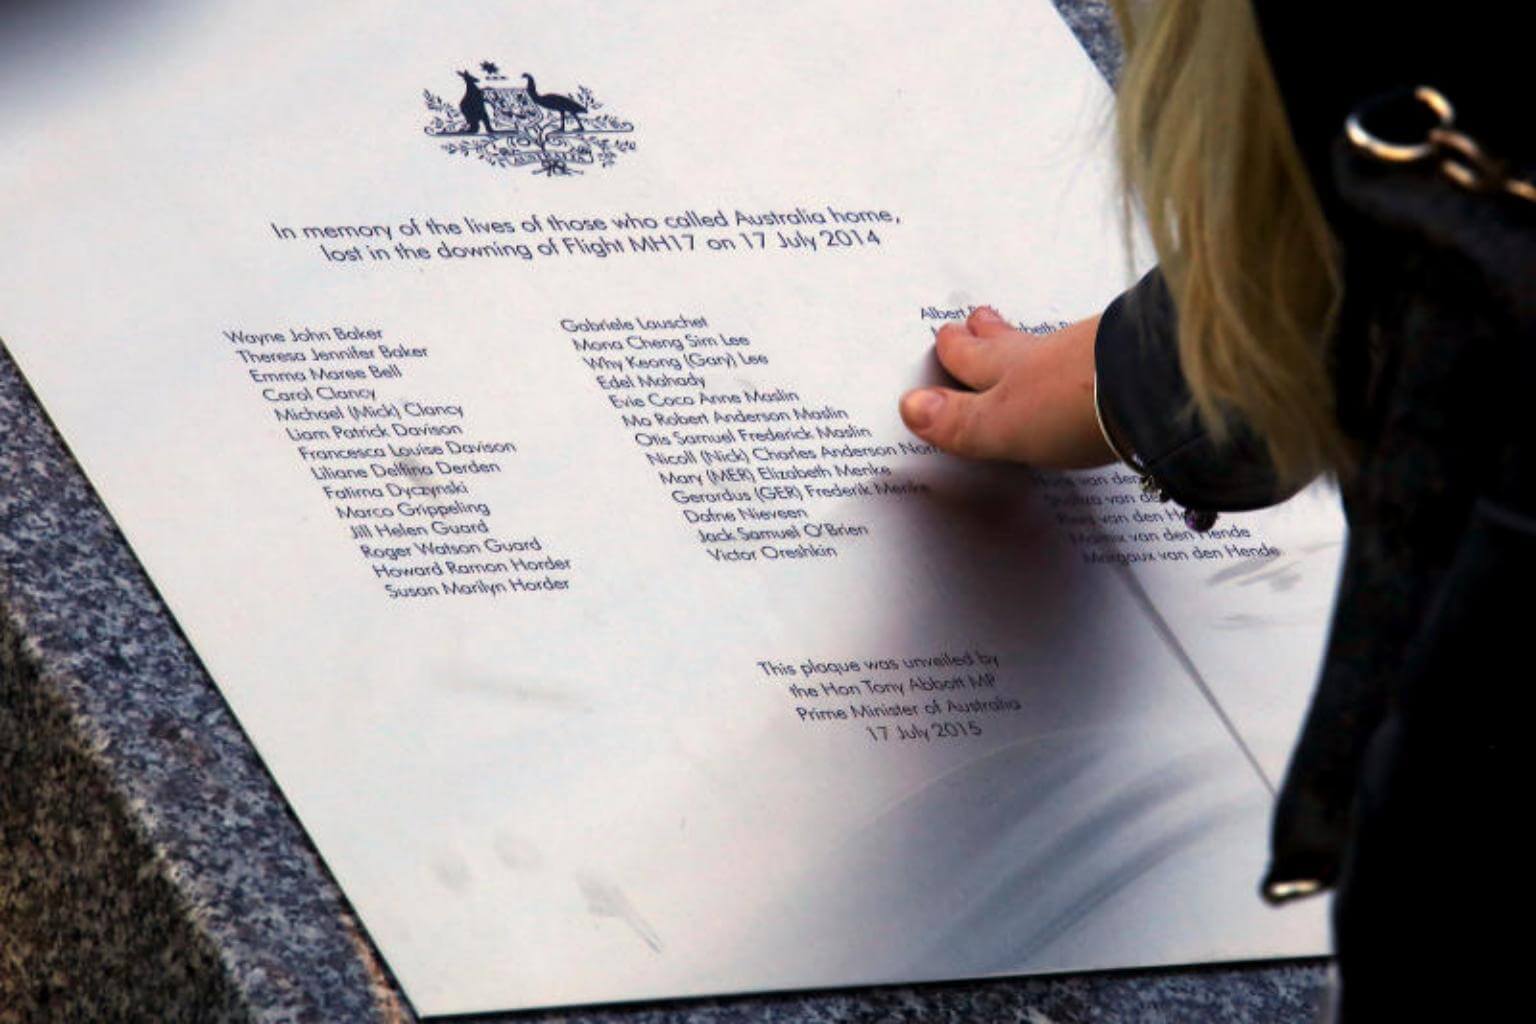 AUSTRALIA
In memory of the lives of those who called Australia home,
lost in the downing of Flight MH17 on 17 July 2014
Wayne John Baker
Theresa Jennifer Baker
Emma Maree Bell
Carol Clancy
Michael (Mick) Clancy
Liam Patrick Davison
Francesca Louise Davison
Liliane Delfina Derden
Fatima Dyczynski
Marco Grippeling
Jill Helen Guard
Roger Watson Guard
Howard Ramon Horder
Susan Marilyn Horder
Gabriele Lauschet
Mona Cheng Sim Lee
Why Keong (Gary) Lee
Edel Mahady
Evie Coco Anne Maslin
Mo Robert Anderson Maslin
Otis Samuel Frederick Maslin
Nicoll (Nick) Charles Anderson Norr
Mary (MER) Elizabeth Menke
Gerardus (GER) Frederik Menke
Dafne Nieveen
Jack Samuel O'Brien
Victor Oreshkin
Albert
van den
Shaliza van de
Piers van den H
Marnix van den Hende
Margaux van den Hende
This plaque was unveiled by
the Hon Tony Abbott MP
Prime Minister of Australia
17 July 2015